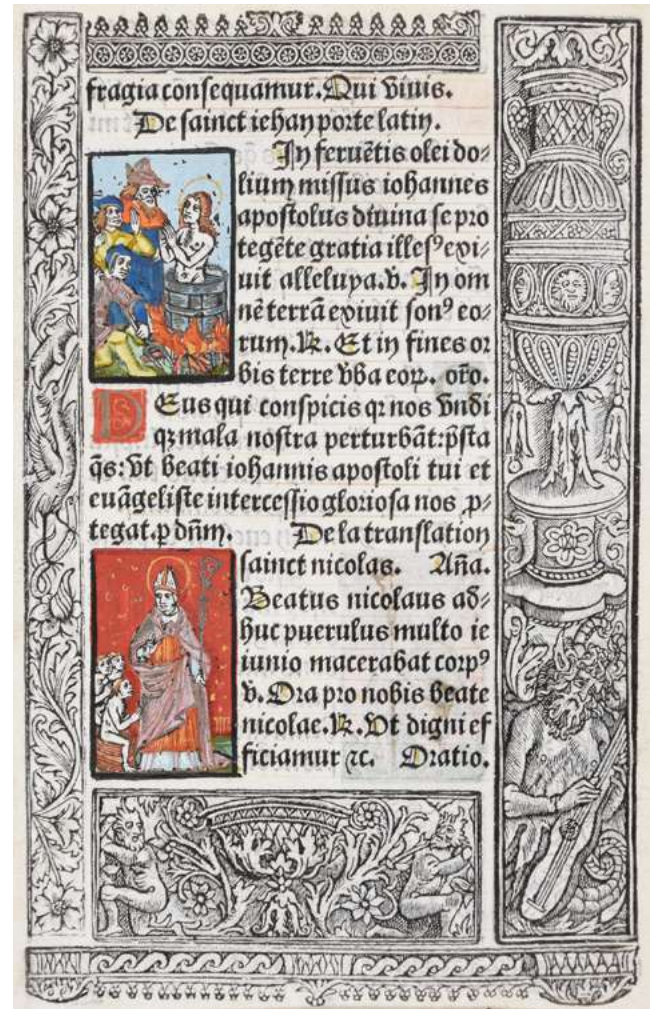 fragia consequamur. Qui vivis.
De sainct iehan porte latin.
In feruētis olei do⸗
lium missus iohannes
apostolus diuina se pro
tegēte gratia illesꝰ exi⸗
uit alleluya. v. In om
nē terrā exiuit sonꝰ eo⸗
rum. R. Et in fines or
bis terre vba eoꝝ. oro.
DEus qui conspicis qꝛ nos vndi
qꝫ mala nostra perturbāt: psta
q̄s: vt beati iohannis apostoli tui et
euāgeliste intercessio gloriosa nos ꝓ⸗
tegat. ꝑ dn̄m. De la translation
sainct nicolas. Añā.
Beatus nicolaus ad⸗
huc puerulus multo ie
iunio macerabat corpꝰ
v. Ora pro nobis beate
nicolae. R. Vt digni ef
ficiamur ⁊c. Oratio.